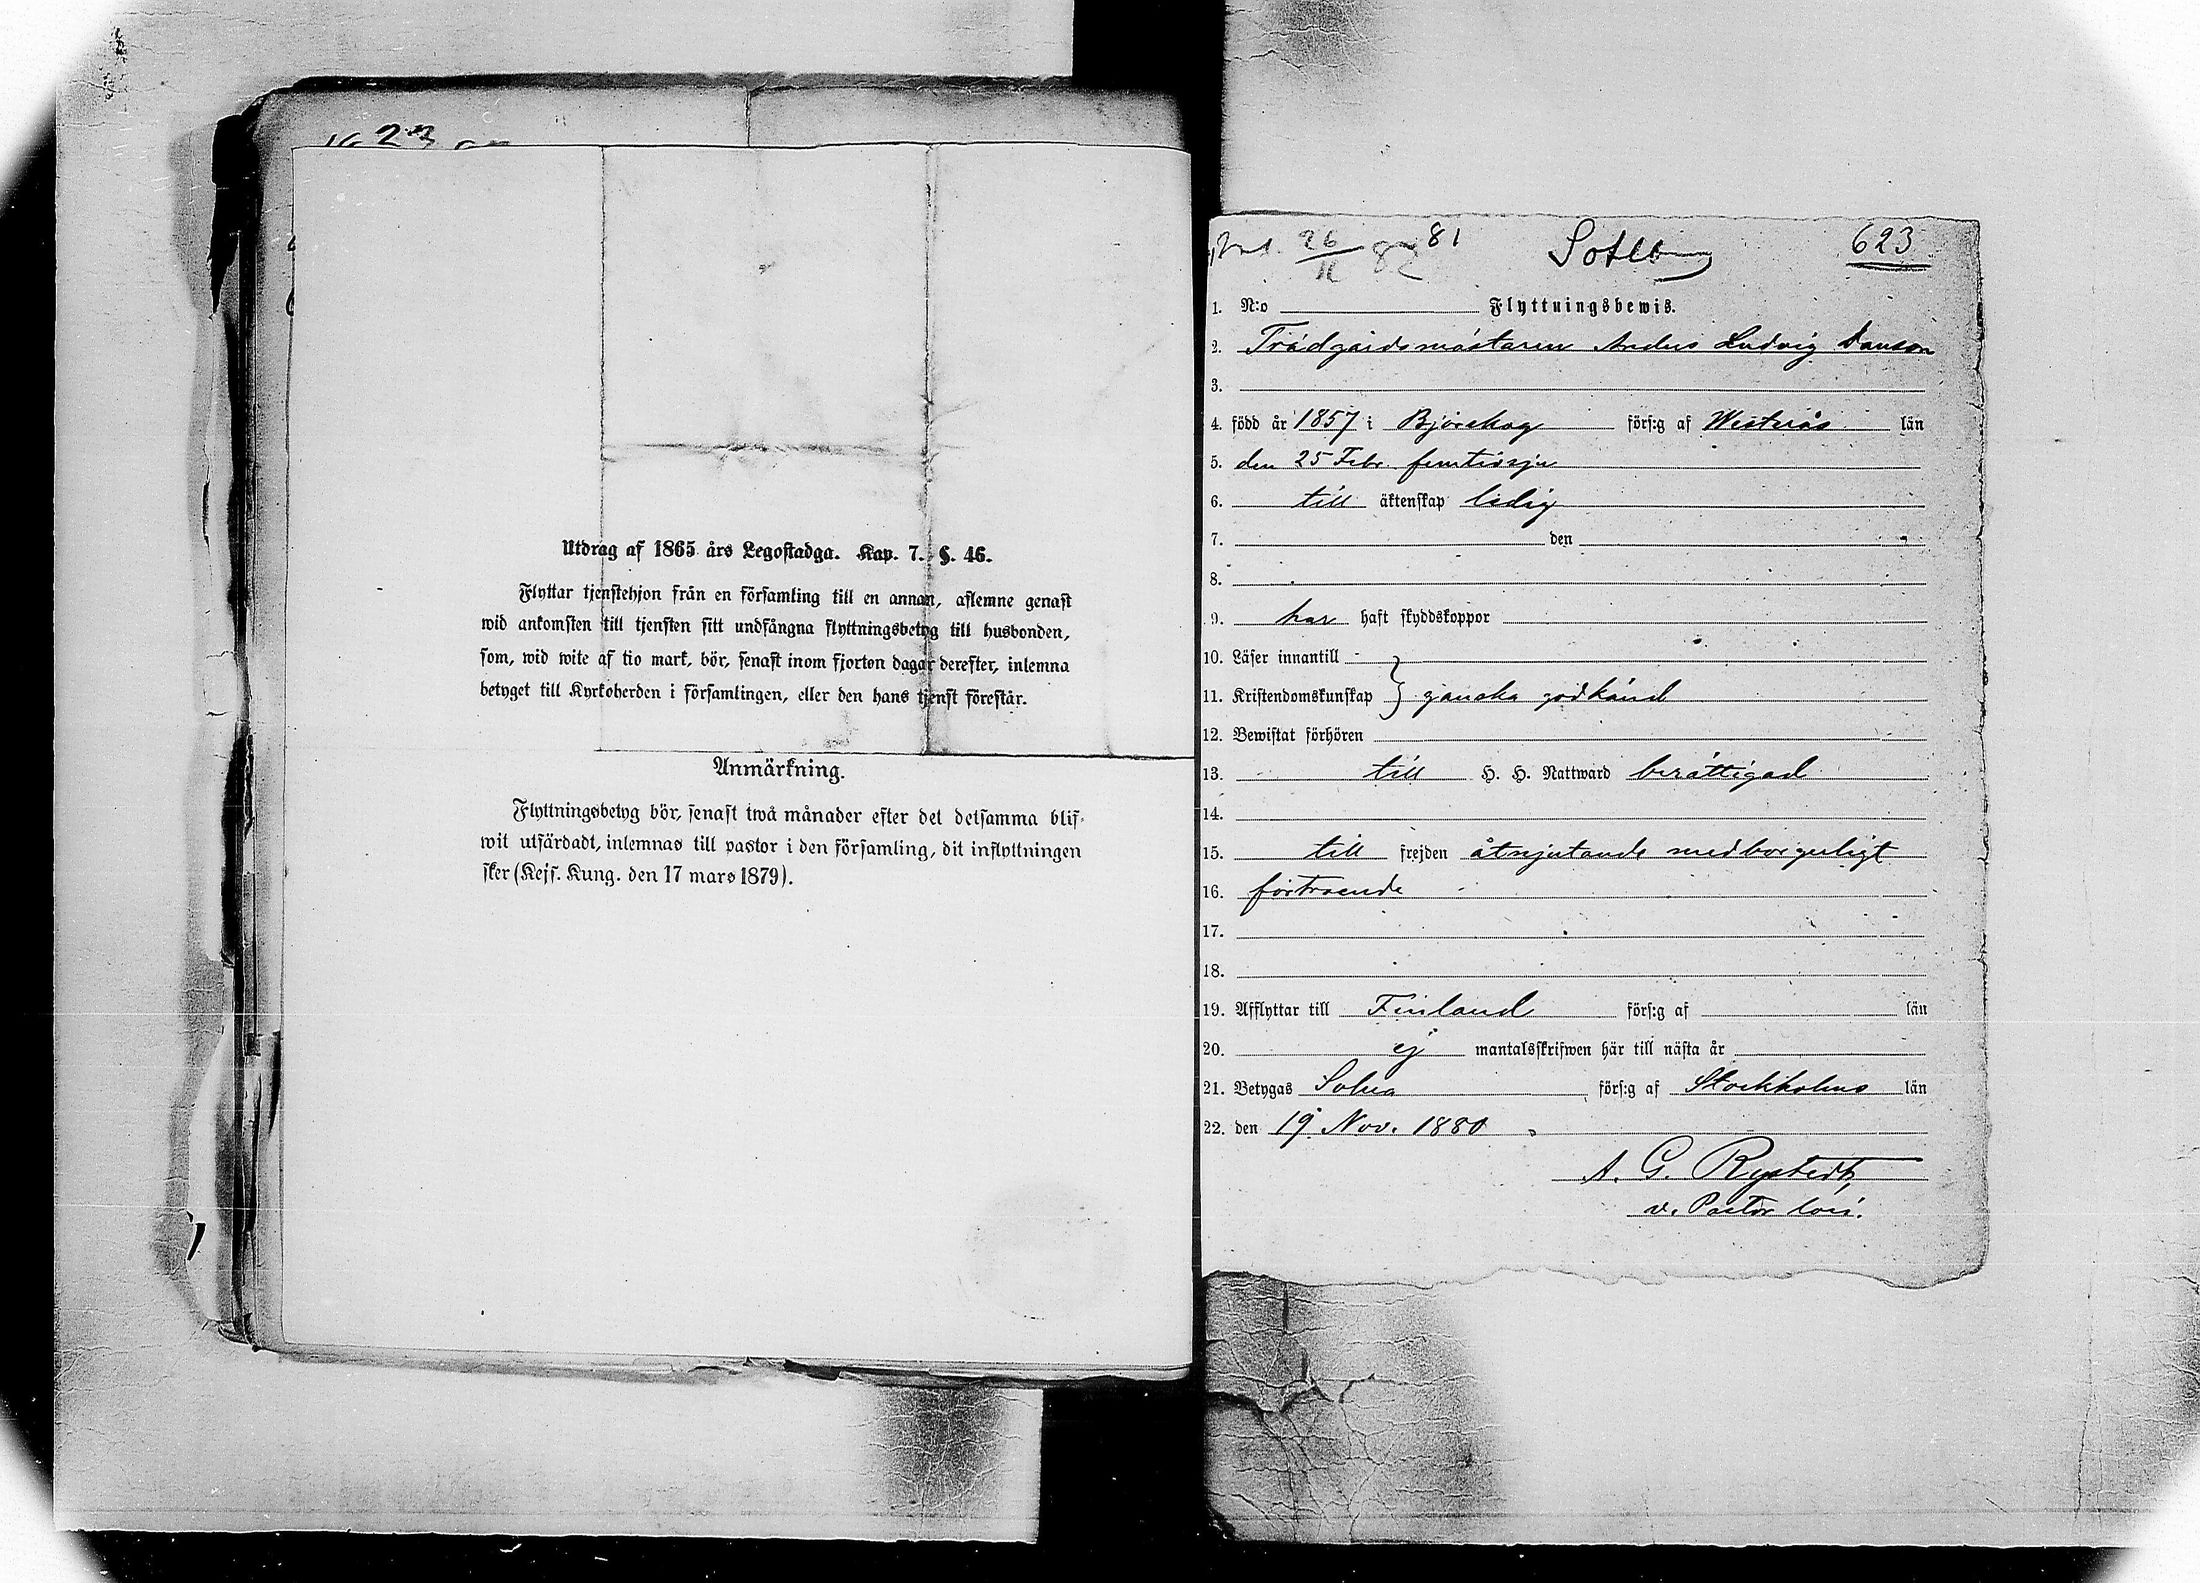 623
Utdrag af 1865 års Legostadga. Kap. 7. §. 46.
Flyttar tjenstehjon från en församling till en annan, aflemne genast
wid ankomsten till tjensten sitt undfångna flyttningsbetyg till husbonden,
som, wid wite af tio mark, bör, senast inom fjorton dagar derefter, inlemna
betyget till Kyrkoherden i församlingen, eller den hans tjenst förestår.
Anmärkning.
Flyttningsbetyg bör, senast twå månader efter det detsamma blif-
wit utfärdadt, inlemnas till pastor i den församling, dit inflyttningen
sker (Kejs. Kung. den 17 mars 1879).
26/11 81
623
1. N:o Flyttningsbewis.
2. Trädgårdsmästaren Anders Ludvig Janson
3.
4. född år 1857 i Björskog förs:g af Westerås län
5. den 25 Febr. femtisju
6. till äktenskap ledig
7. den
8.
9. har haft skyddskoppor
10. Läser innantill
11. Kristendomskunskap } ganska godkänd
12. Bewistat förhören
13. till H. H. Nattward berättigad
14.
15. till frejden åtnjutande medborgerligt
16. förtroende
17.
18.
19. Afflyttar till Finland förs:g af län
20. ej mantalsskrifwen här till nästa år
21. Betygas Solna förs:g af Stockholms län
22. den 19 Nov. 1880
A. G. Rystedt,
v. Pastor